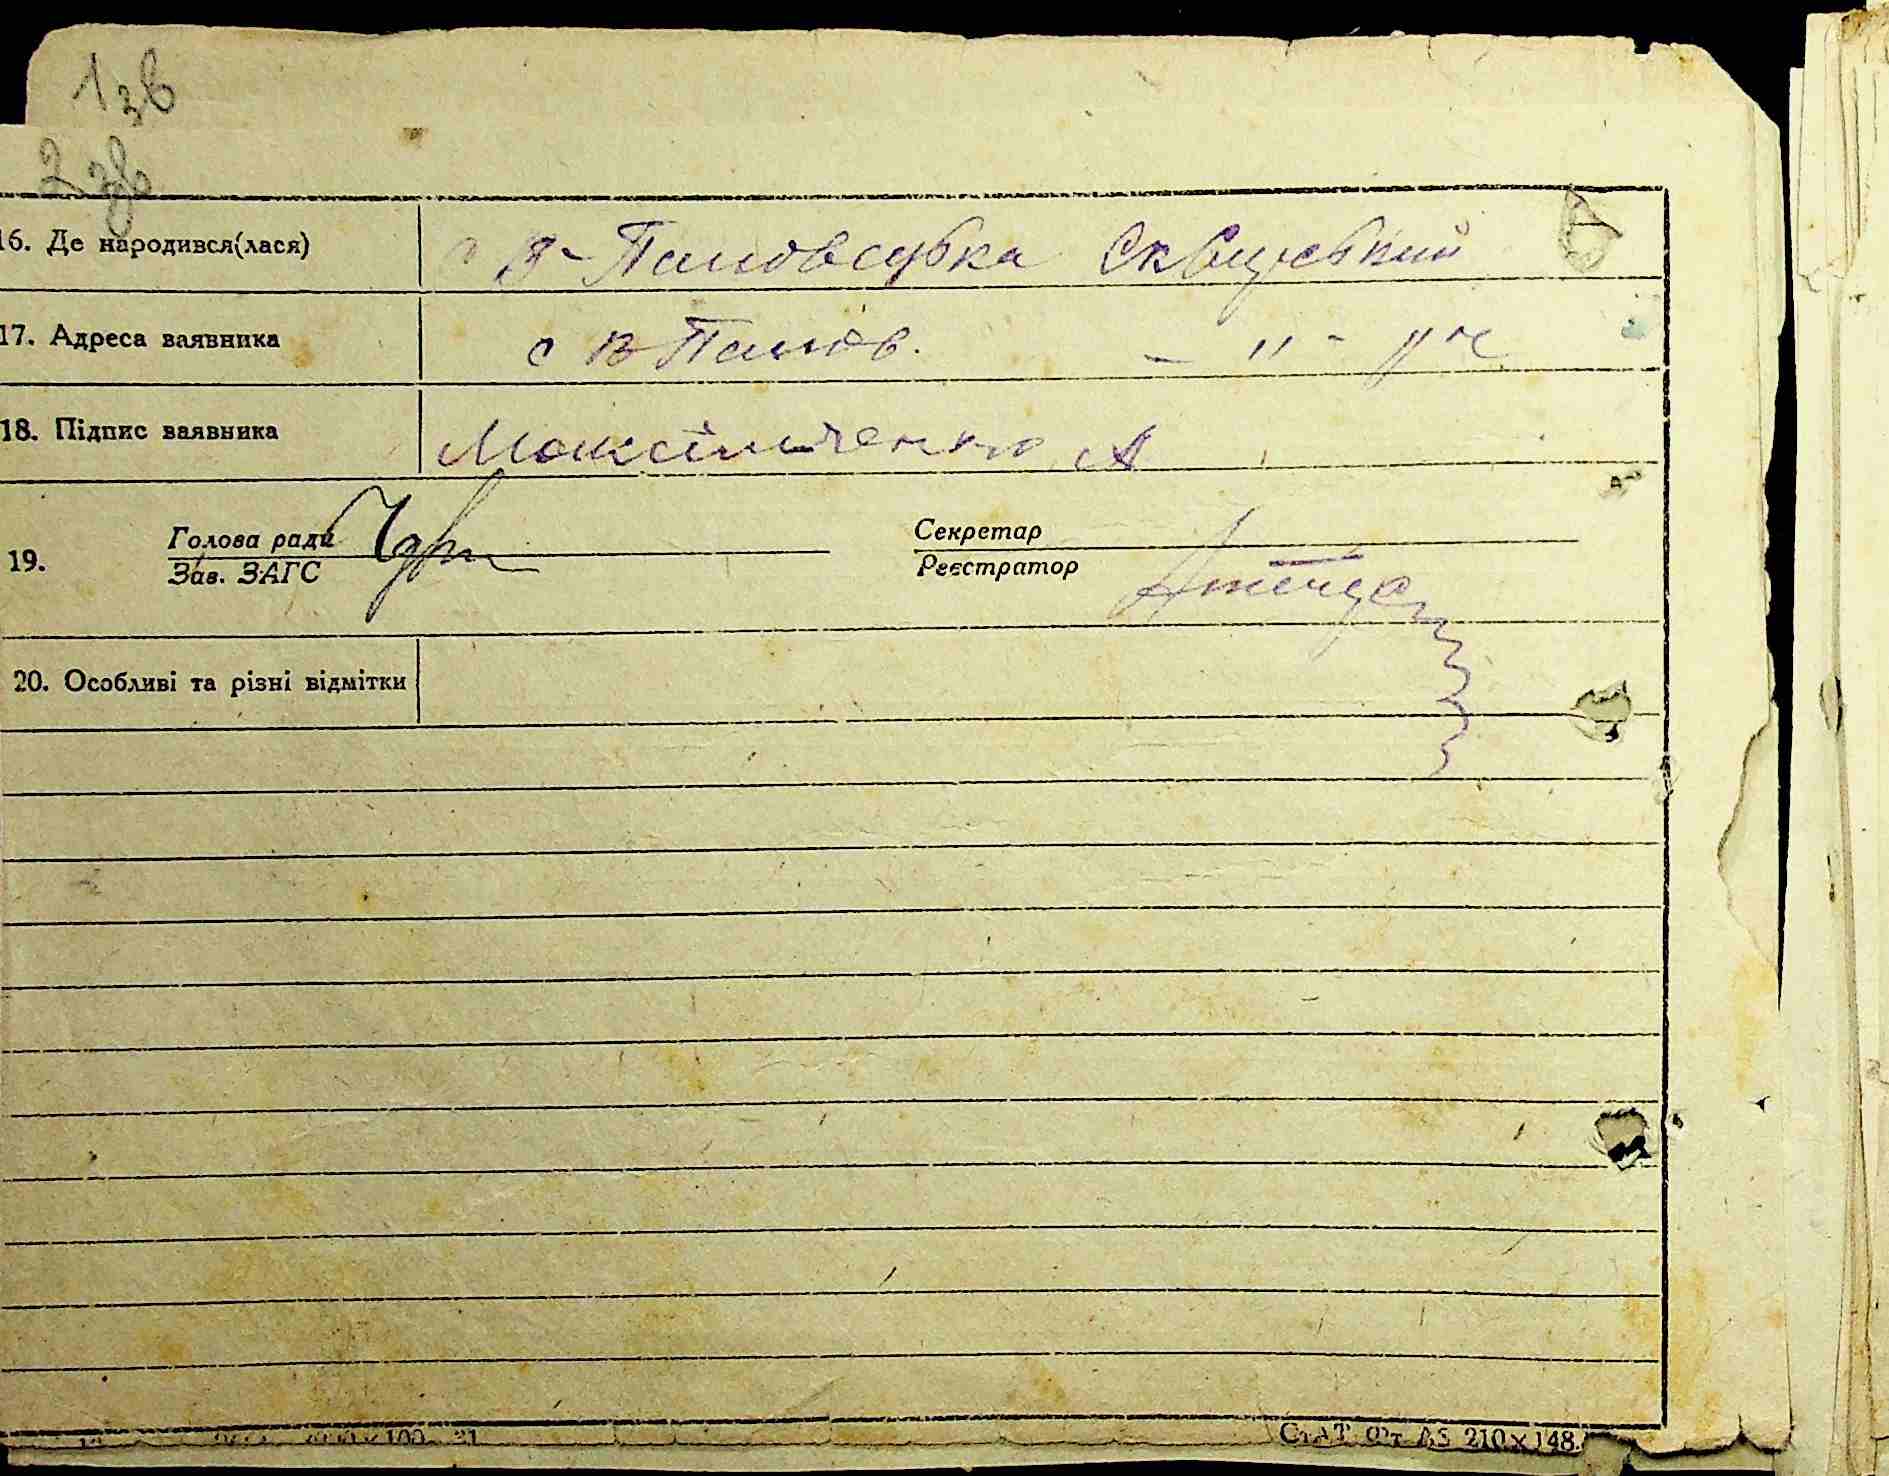 1зв
2зв
16. Де народився(лася) с В-Половецка Сквирський
17. Адреса заявника с В Полов. - " - р-н
18. Підпис заявника Максімченко А
19. Голова ради
Зав. ЗАГС
Секретар
Реєстратор
20. Особливі та різні відмітки
СтАТ фт А5 210×148.